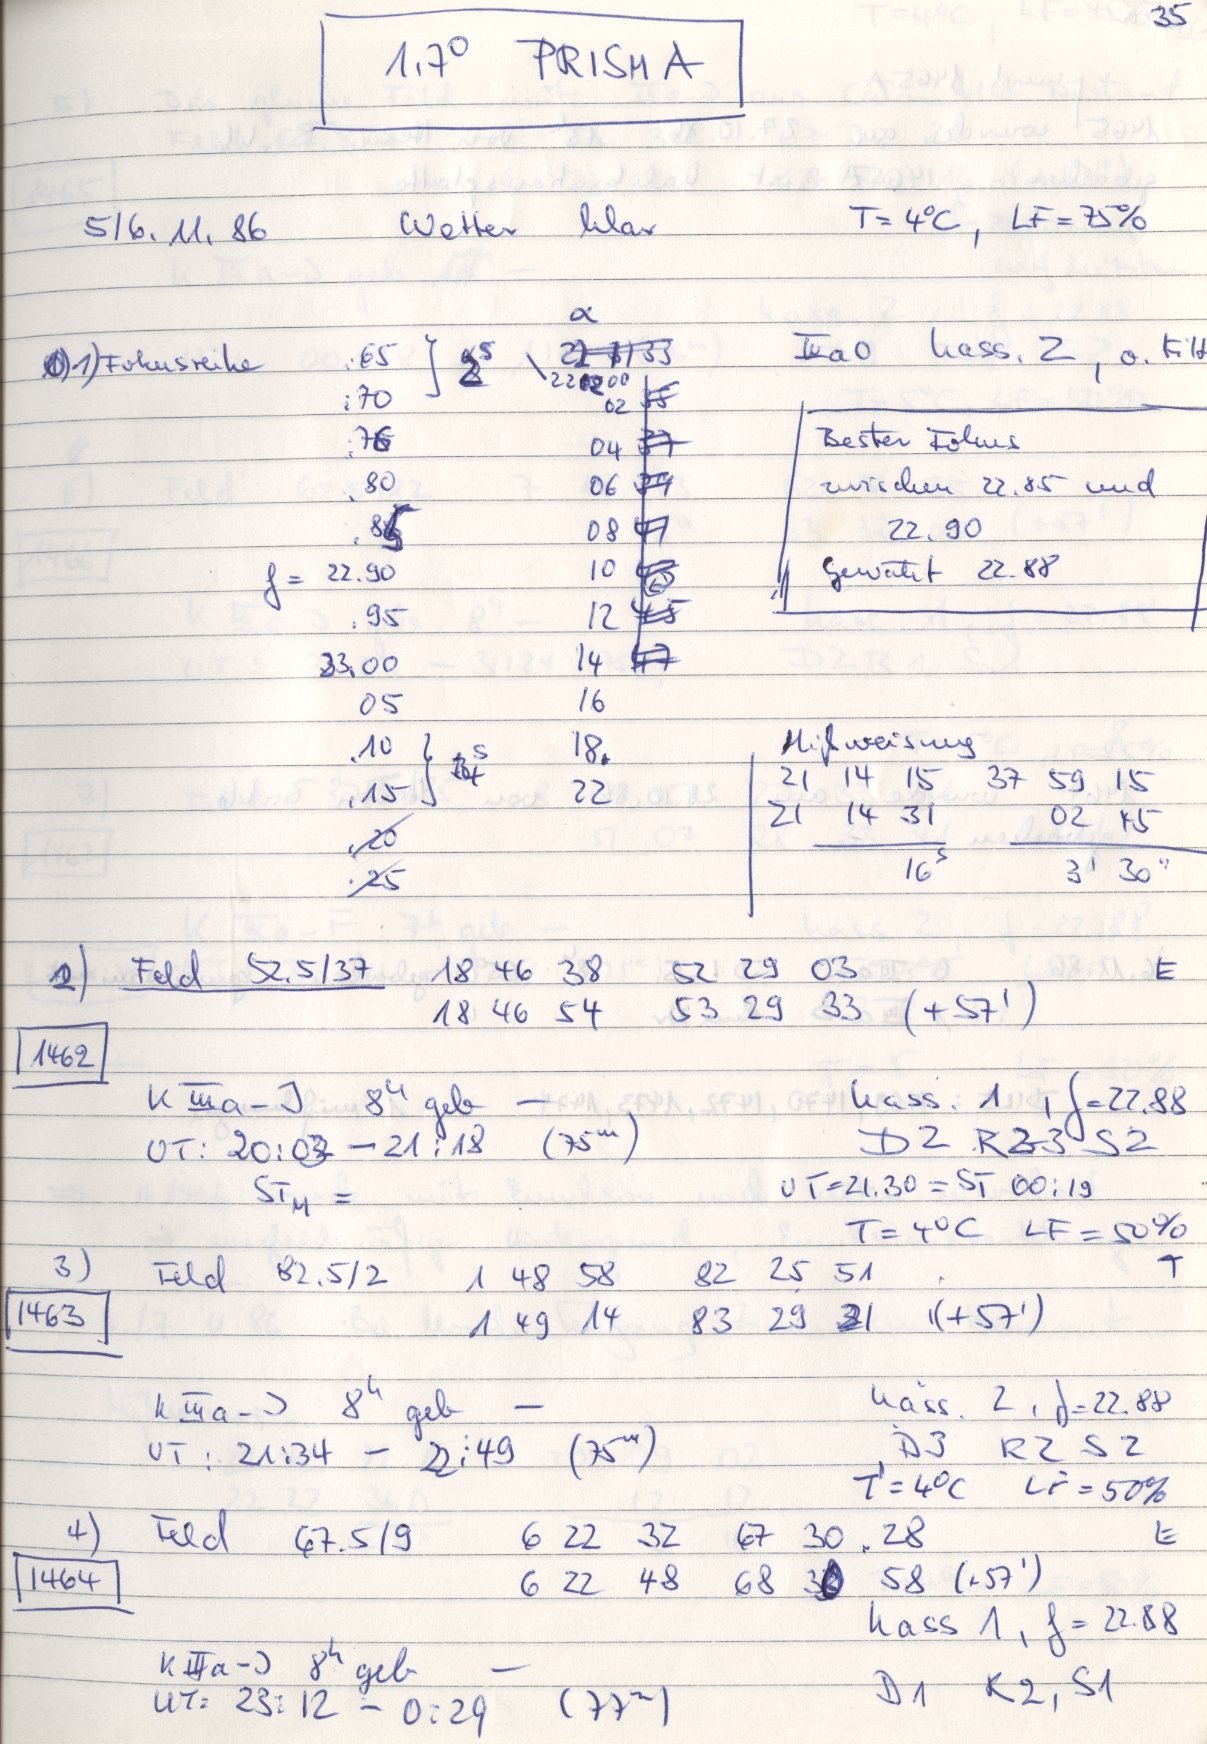 35
1.7° PRISMA
5/6. 11. 86 Wetter klar T=4°C, LF=75%
α
1) Fokusreihe .65 22 31 33 IIIa0 Kass. 2, o. Filt
:70 22 02 00
02 35
.75 04 37 Bester Fokus
.80 06 39 zwischen 22.85 und
.85 08 41 22.90
f = 22.90 10 Gewählt 22.88
.95 12 45
23.00 14 47
05 16
.10 18. Mißweisung
.15 22 21 14 15 37 59 15
.20 21 14 31 02 45
.25 16ˢ 3' 30"
2) Feld 52.5/37 18 46 38 52 29 03 E
18 46 54 53 29 33 (+57')
1462
K IIIa-J 8ʰ geb — Kass. 1, f=22.88
UT: 20:03 – 21:18 (75ᵐ) D2 R3 S2
ST_M = UT=21.30 = ST 00:19
T=4°C LF=50%
3) Feld 82.5/2 1 48 58 82 25 51 T
1463 1 49 14 83 29 21 (+57')
K IIIa-J 8ʰ geb — Kass. 2, f=22.88
UT: 21:34 – 22:49 (75ᵐ) D3 R2 S2
T=4°C LF=50%
4) Feld 67.5/9 6 22 32 67 30 28 E
1464 6 22 48 68 30 58 (+57')
Kass 1, f=22.88
K IIIa-J 8ʰ geb — D1 R2, S1
UT: 23:12 – 0:29 (77ᵐ)